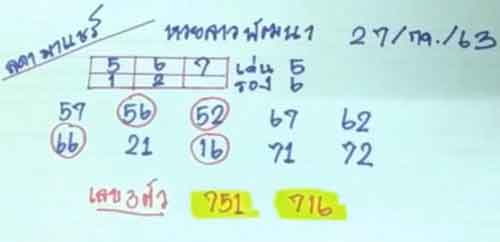 ลดา มาแชร์
หวยลาวพัฒนา 27/กค./63
5 6 7 เด่น 5
1 2 รอง 6
57 56 52 67 62
66 21 16 71 72
เลข 3 ตัว 751 716